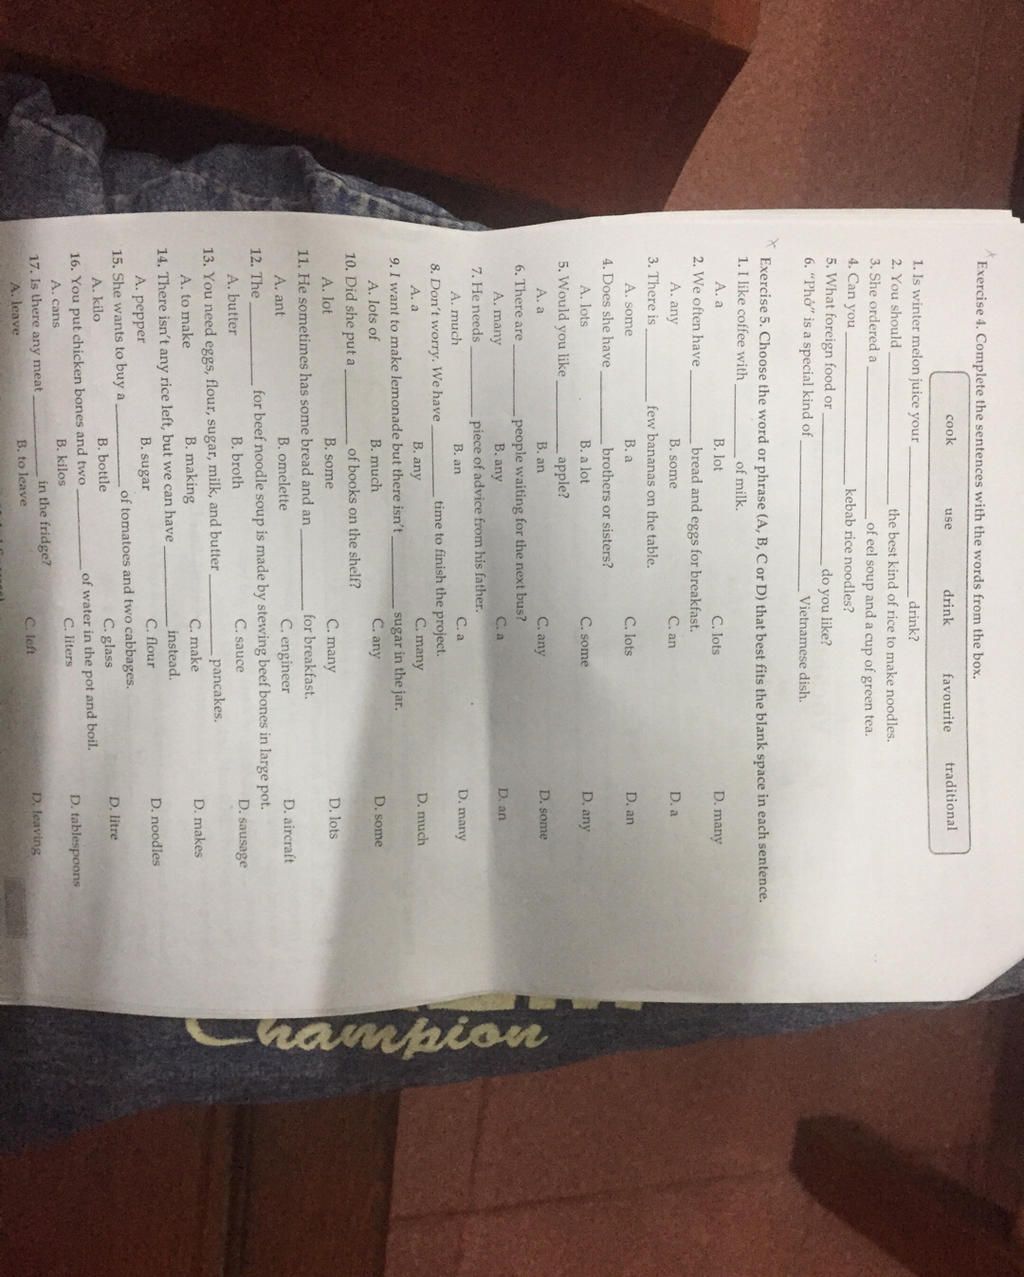 Exercise 4. Complete the sentences with the words from the box.
cook use drink favourite traditional
1. Is winter melon juice your ________ drink?
2. You should ________ the best kind of rice to make noodles.
3. She ordered a ________ of eel soup and a cup of green tea.
4. Can you ________ kebab rice noodles?
5. What foreign food or ________ do you like?
6. "Phở" is a special kind of ________ Vietnamese dish.
Exercise 5. Choose the word or phrase (A, B, C or D) that best fits the blank space in each sentence.
1. I like coffee with ________ of milk.
A. a B. lot C. lots D. many
2. We often have ________ bread and eggs for breakfast.
A. any B. some C. an D. a
3. There is ________ few bananas on the table.
A. some B. a C. lots D. an
4. Does she have ________ brothers or sisters?
A. lots B. a lot C. some D. any
5. Would you like ________ apple?
A. a B. an C. any D. some
6. There are ________ people waiting for the next bus?
A. many B. any C. a D. an
7. He needs ________ piece of advice from his father.
A. much B. an C. a D. many
8. Don't worry. We have ________ time to finish the project.
A. a B. any C. many D. much
9. I want to make lemonade but there isn't ________ sugar in the jar.
A. lots of B. much C. any D. some
10. Did she put a ________ of books on the shelf?
A. lot B. some C. many D. lots
11. He sometimes has some bread and an ________ for breakfast.
A. ant B. omelette C. engineer D. aircraft
12. The ________ for beef noodle soup is made by stewing beef bones in large pot.
A. butter B. broth C. sauce D. sausage
13. You need eggs, flour, sugar, milk, and butter ________ pancakes.
A. to make B. making C. make D. makes
14. There isn't any rice left, but we can have ________ instead.
A. pepper B. sugar C. flour D. noodles
15. She wants to buy a ________ of tomatoes and two cabbages.
A. kilo B. bottle C. glass D. litre
16. You put chicken bones and two ________ of water in the pot and boil.
A. cans B. kilos C. liters D. tablespoons
17. Is there any meat ________ in the fridge?
A. leave B. to leave C. left D. leaving
Champion